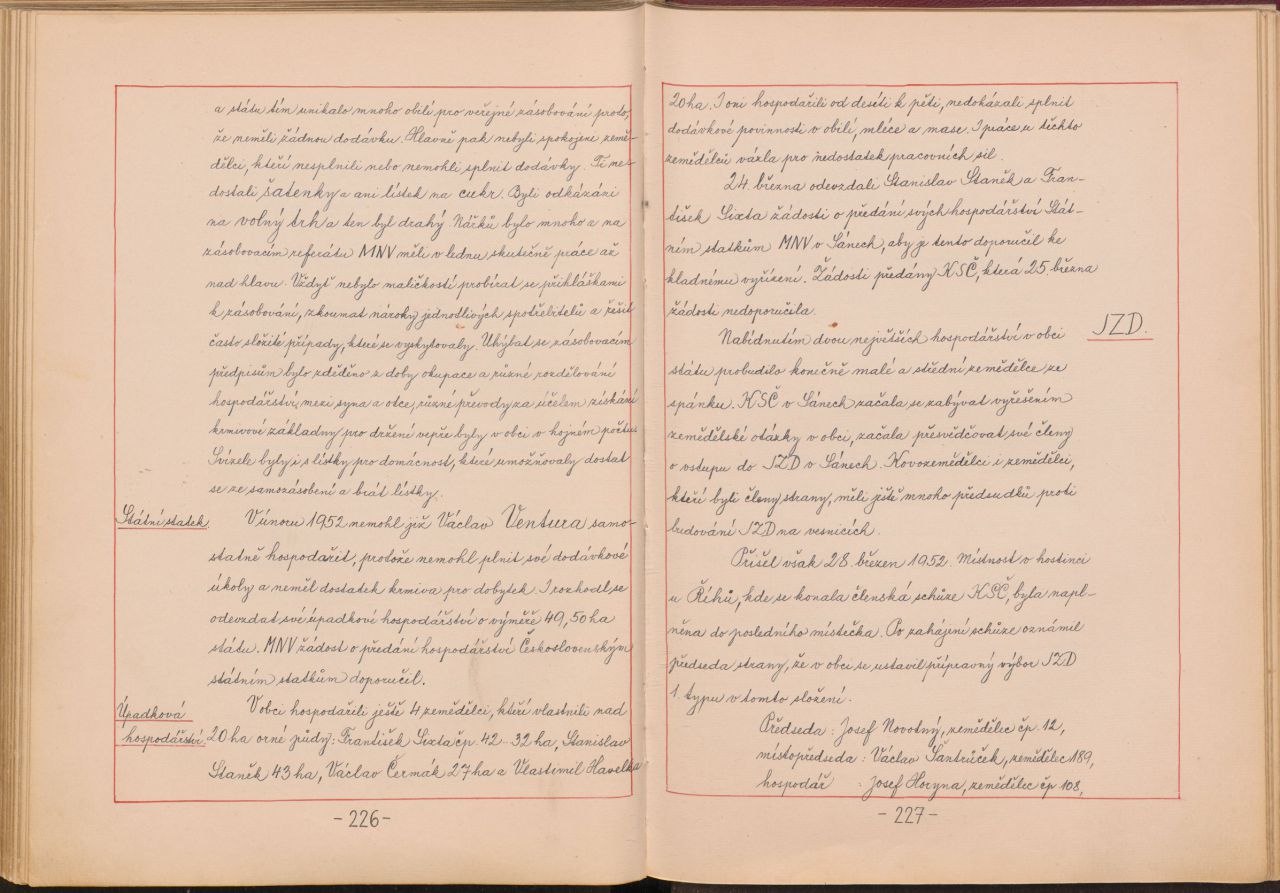 a státu tím unikalo mnoho obilí pro veřejné zásobování proto,
že neměli žádnou dodávku. Hlavně pak nebyli spokojeni země-
dělci, kteří nesplnili nebo nemohli splnit dodávky. Ti ne-
dostali šatenky a ani lístek na cukr. Byli odkázáni
na volný trh a ten byl drahý. Nářků bylo mnoho a na
zásobovacím referátu MNV měli v lednu skutečně práce až
nad hlavu. Vždyť nebylo maličkostí probírat se přihláškami
k zásobování, zkoumat nároky jednotlivých spotřebitelů a řešit
často složité případy, které se vyskytovaly. Uhýbat se zásobovacím
předpisům bylo zděděno z doby okupace a různé rozdělování
hospodářství mezi syna a otce, různé převody za účelem získání
krmivové základny pro držení vepře byly v obci v hojném počtu.
Svízele byly i s lístky pro domácnost, které umožňovaly dostat
se ze samozásobení a brát lístky.
Státní statek.
V únoru 1952 nemohl již Václav Ventura samo-
statně hospodařit, protože nemohl plnit své dodávkové
úkoly a neměl dostatek krmiva pro dobytek. I rozhodl se
odevzdat své úpadkové hospodářství o výměře 49,50 ha
státu. MNV žádost o předání hospodářství Československým
státním statkům doporučil.
Úpadková
hospodářství.
V obci hospodařili ještě 4 zemědělci, kteří vlastnili nad
20 ha orné půdy: František Sixta čp. 42 - 32 ha, Stanislav
Staněk 43 ha, Václav Čermák 27 ha a Vlastimil Havelka
- 226 -
20 ha. I oni hospodařili od desíti k pěti, nedokázali splnit
dodávkové povinnosti v obilí, mléce a mase. I práce u těchto
zemědělců vázla pro nedostatek pracovních sil.
24. března odevzdali Stanislav Staněk a Fran-
tišek Sixta žádosti o předání svých hospodářství Stát-
ním statkům MNV v Sánech, aby je tento doporučil ke
kladnému vyřízení. Žádosti předány KSČ, která 25. března
žádosti nedoporučila.
JZD.
Nabídnutím dvou největších hospodářství v obci
státu probudilo konečně malé a střední zemědělce ze
spánku. KSČ v Sánech začala se zabývat vyřešením
zemědělské otázky v obci, začala přesvědčovat své členy
o vstupu do JZD v Sánech. Kovozemědělci i zemědělci,
kteří byli členy strany, měli ještě mnoho předsudků proti
budování JZD na vesnicích.
Přišel však 28. březen 1952. Místnost v hostinci
u Říhů, kde se konala členská schůze KSČ, byla napl-
něna do posledního místečka. Po zahájení schůze oznámil
předseda strany, že v obci se ustavil přípravný výbor JZD
1. typu v tomto složení.
Předseda : Josef Novotný, zemědělec čp. 12,
místopředseda : Václav Šantrůček, zemědělec 189,
hospodář : Josef Horyna, zemědělec čp 108,
- 227 -